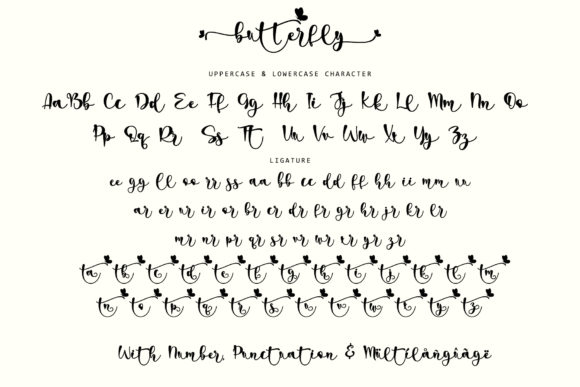 butterfly
UPPERCASE & LOWERCASE CHARACTER
Aa Bb Cc Dd Ee Ff Gg Hh Ii Jj Kk Ll Mm Nn Oo
Pp Qq Rr Ss Tt Uu Vv Ww Xx Yy Zz
LIGATURE
ee gg ll oo rr ss aa bb cc dd ff hh ii mm nn
ar er ur ir or br cr dr fr gr hr jr kr lr
mr nr pr qr sr vr wr xr yr zr
ta tb tc td te tf tg th ti tj tk tl tm
tn to tp tq tr ts tu tv tw tx ty tz
With Number, Punctuation &